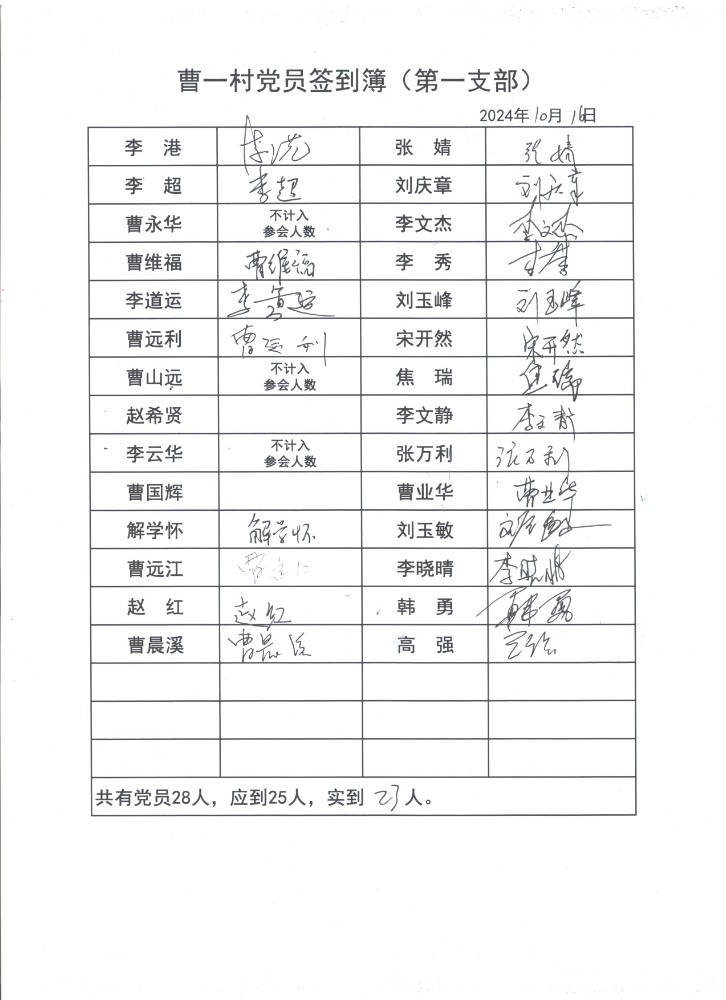 曹一村党员签到簿（第一支部）
2024年10月16日
李 港 李港 张 婧 张婧
李 超 李超 刘庆章 刘庆章
曹永华 不计入 参会人数 李文杰 李文杰
曹维福 曹维福 李 秀 李秀
李道运 李道运 刘玉峰 刘玉峰
曹远利 曹远利 宋开然 宋开然
曹山远 不计入 参会人数 焦 瑞 焦瑞
赵希贤 李文静 李文静
李云华 不计入 参会人数 张万利 张万利
曹国辉 曹业华 曹业华
解学怀 解学怀 刘玉敏 刘玉敏
曹远江 曹远江 李晓晴 李晓晴
赵 红 赵红 韩 勇 韩勇
曹晨溪 曹晨溪 高 强
共有党员28人，应到25人，实到 23 人。